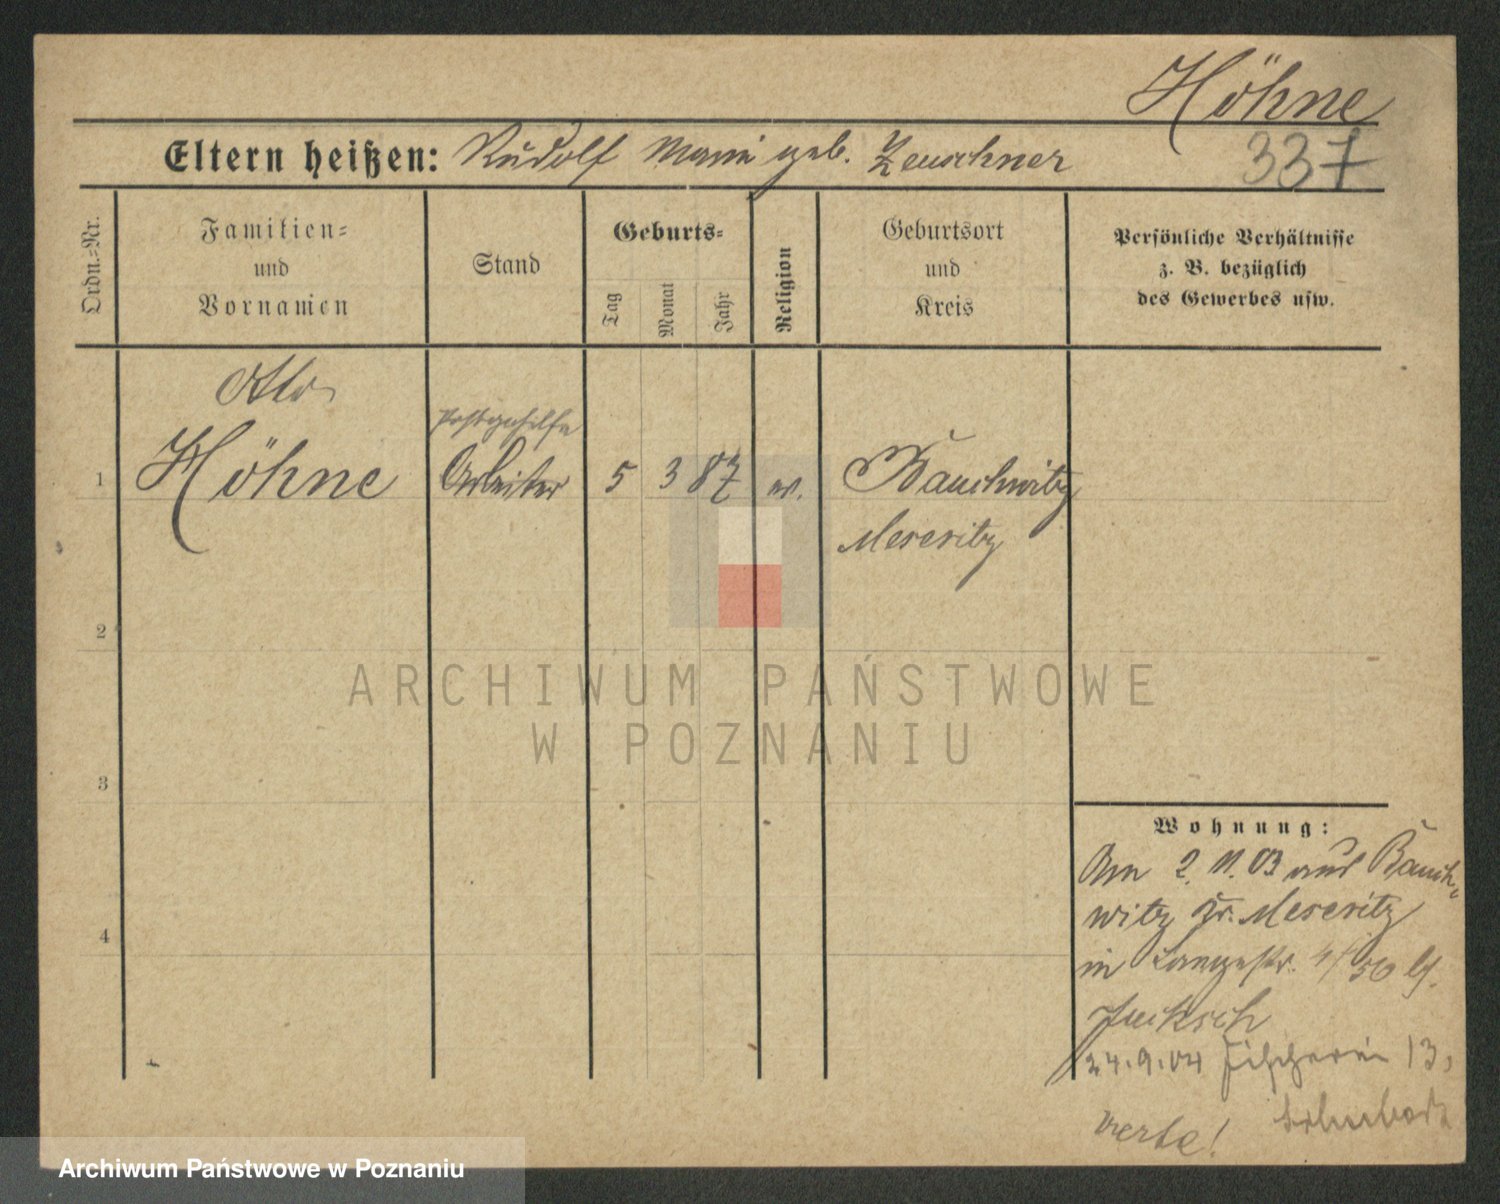 Höhne
Eltern heißen: Rudolf Marie geb. Zeuschner
337
Ordn.-Nr.
Familien-
und
Vornamen
Stand
Geburts-
Tag
Monat
Jahr
Religion
Geburtsort
und
Kreis
Persönliche Verhältnisse
z. B. bezüglich
des Gewerbes usw.
Otto
Postgehilfe
1 Höhne Arbeiter 5 3 87 ev. Bauchwitz
Meseritz
2
3
4
ARCHIWUM PAŃSTWOWE
W POZNANIU
Wohnung:
Am 2. 11. 03 aus Bauch-
witz Kr. Meseritz
in Langestr.
24.9.04 Fischerei 13,
verte!
Archiwum Państwowe w Poznaniu